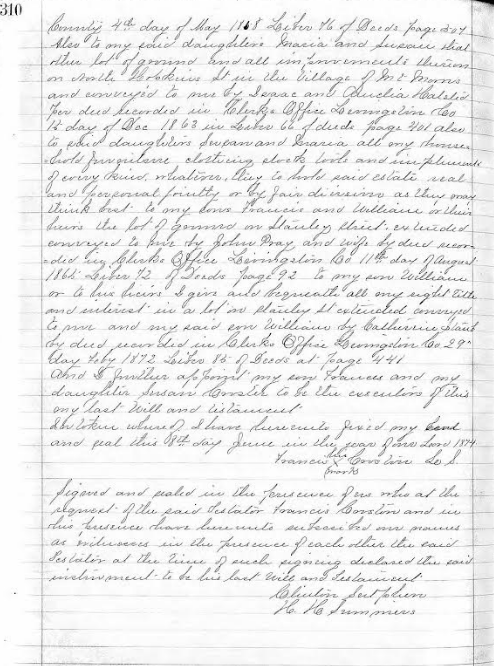 310
County 4th day of May 1868 Liber 76 of Deeds page 207
Also to my said daughters Maria and Susan that
other lot of ground and all improvements thereon
on North Hopkins St in the Village of Mt Morris
and conveyed to me by Isaac and
per deed recorded in Clerks Office Livingston Co
15 day of Dec 1863 in Liber 66 of deeds page 401 also
to said daughters Susan and Maria, all my house
hold furniture clothing stock tools and implements
of every kind whatever, they to hold said estate real
and personal jointly or by fair division as they may
think best. to my sons Francis and William or their
heirs the lot of ground on Stanley street extended
conveyed to me by John Pray and wife by deed recor
ded in Clerks Office Livingston Co 11th day of August
1865 Liber 72 of Deeds page 92 to my son William
or to his heirs I give and bequeath all my right title
and interest in a lot on Stanley St extended conveyed
to me and my said son William by Catherine
by deed recorded in Clerks Office Livingston Co 29th
day Feby 1872 Liber 85 of Deeds at page 441
And I further appoint my son Frances and my
daughter Susan to be the executors of this
my last Will and testament
In token whereof I have hereunto fixed my hand
and seal this 8th day June in the year of our Lord 1874
Francis his X mark L. S.
Signed and sealed in the presence of us who at the
request of the said Testator Francis and in
his presence have hereunto subscribed our names
as witnesses in the presence of each other the said
Testator at the time of such signing declared the said
instrument to be his last Will and Testament
Clinton Sutphen
H. H. Summers